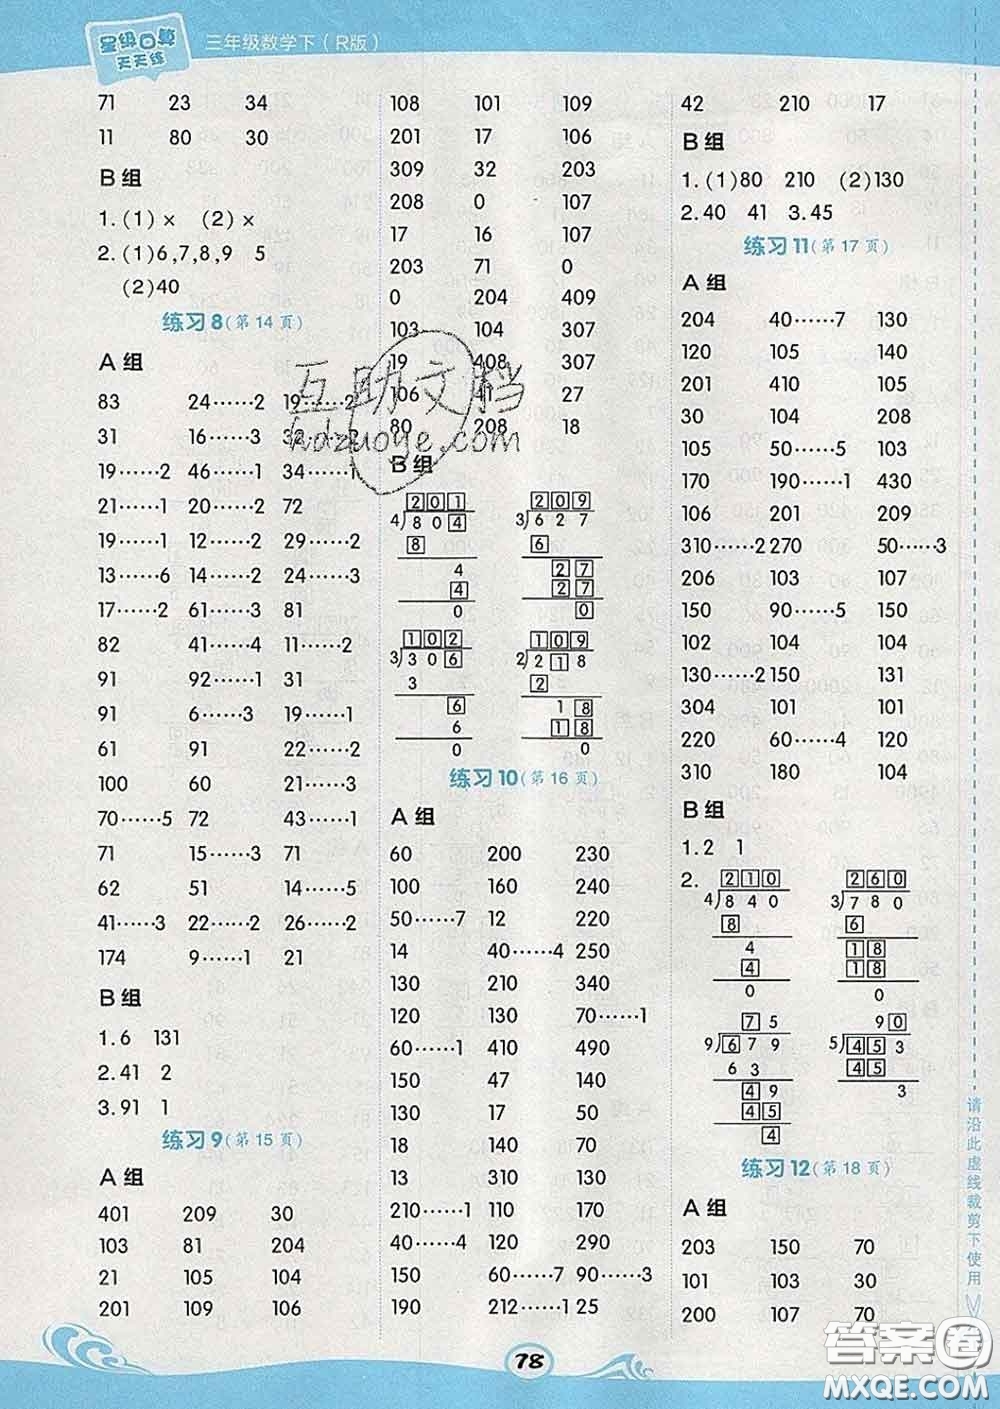 星级口算
天天练
三年级数学下（R版）
71 23 34
11 80 30
B组
1.(1)× (2)×
2.(1)6,7,8,9 5
(2)40
练习8(第14页)
A组
83 24……2 19……2
31 16……3 32……2
19……2 46……1 34……1
21……1 20……2 72
19……1 12……2 29……2
13……6 14……2 24……3
17……2 61……3 81
82 41……4 11……2
91 92……1 31
91 6……3 19……1
61 91 22……2
100 60 21……3
70……5 72 43……1
71 15……3 71
62 51 14……5
41……3 22……2 26……2
174 9……1 21
B组
1.6 131
2.41 2
3.91 1
练习9(第15页)
A组
401 209 30
103 81 204
21 105 104
201 109 106
108 101 109
201 17 106
309 32 203
208 0 107
17 16 107
203 71 0
0 204 409
103 104 307
19 408 307
106 41 27
80 208 18
B组
201 209
4)804 3)627
8 6
4 27
4 27
0 0
102 109
3)306 2)218
3 2
6 18
6 18
0 0
练习10(第16页)
A组
60 200 230
100 160 240
50……7 12 220
14 40……4 250
130 210 340
120 130 70……1
60……1 410 490
150 47 140
130 17 50
18 140 70
13 310 130
210……1 110 170
40……4 120 290
150 60……7 90……3
190 212……1 25
42 210 17
B组
1.(1)80 210 (2)130
2.40 41 3.45
练习11(第17页)
A组
204 40……7 130
120 105 140
201 410 105
30 104 208
105 50……5 103
170 190……1 430
106 201 209
310……2 270 50……3
206 103 107
150 90……5 150
102 104 104
130……2 150 131
304 101 101
220 60……4 120
310 180 104
B组
1.2 1
2. 210 260
4)840 3)780
8 6
4 18
4 18
0 0
75 90
9)679 5)453
63 45
49 3
45
4
练习12(第18页)
A组
203 150 70
101 103 30
200 107 70
请沿此虚线裁剪下使用
78
互助文档
hdzuoye.com
答案圈
MXQE.COM